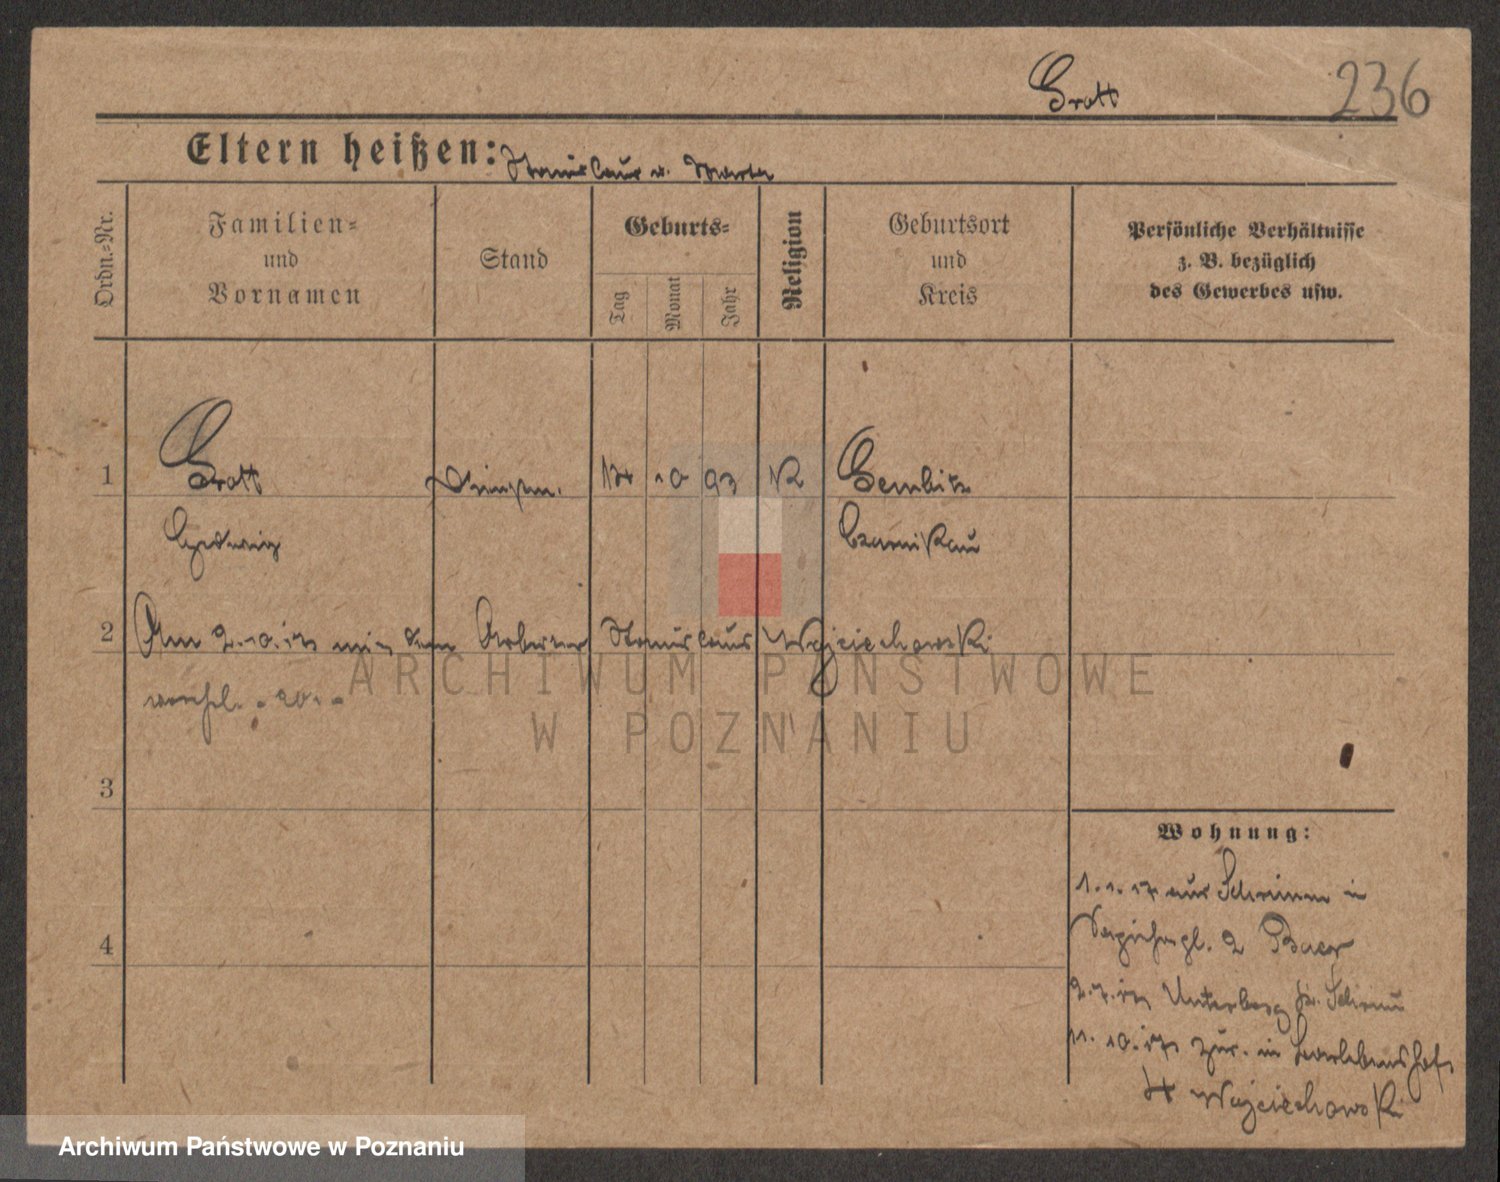 Gratt
236
Eltern heißen: Stanislaus u. Marta
Ordn.-Nr.
Familien-
und
Vornamen
Stand
Geburts-
Tag
Monat
Jahr
Religion
Geburtsort
und
Kreis
Persönliche Verhältnisse
z. B. bezüglich
des Gewerbes usw.
1
Gratt
14 10 93 K Gembitz
Hedwig
Czarnikau
2
Am 2.10.17 mit dem Arbeiter Stanislaus Wojciechowski
verehel.
3
4
Wohnung:
1.1.17 aus Schrimm in
2 Baer
2.7.17 Unterberg Kr. Schrimm
11.10.17 zur. in
14 Wojciechowski
ARCHIWUM PAŃSTWOWE
W POZNANIU
Archiwum Państwowe w Poznaniu